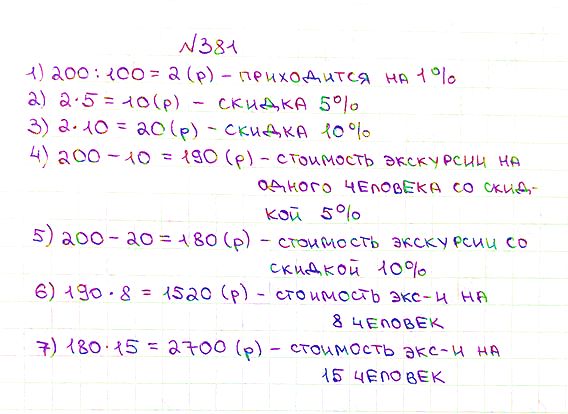 №381
1) 200 : 100 = 2 (р) – приходится на 1%
2) 2·5 = 10 (р) – скидка 5%
3) 2·10 = 20 (р) – скидка 10%
4) 200 – 10 = 190 (р) – стоимость экскурсии на
одного человека со скид-
кой 5%
5) 200 – 20 = 180 (р) – стоимость экскурсии со
скидкой 10%
6) 190 · 8 = 1520 (р) – стоимость экс-и на
8 человек
7) 180 · 15 = 2700 (р) – стоимость экс-и на
15 человек